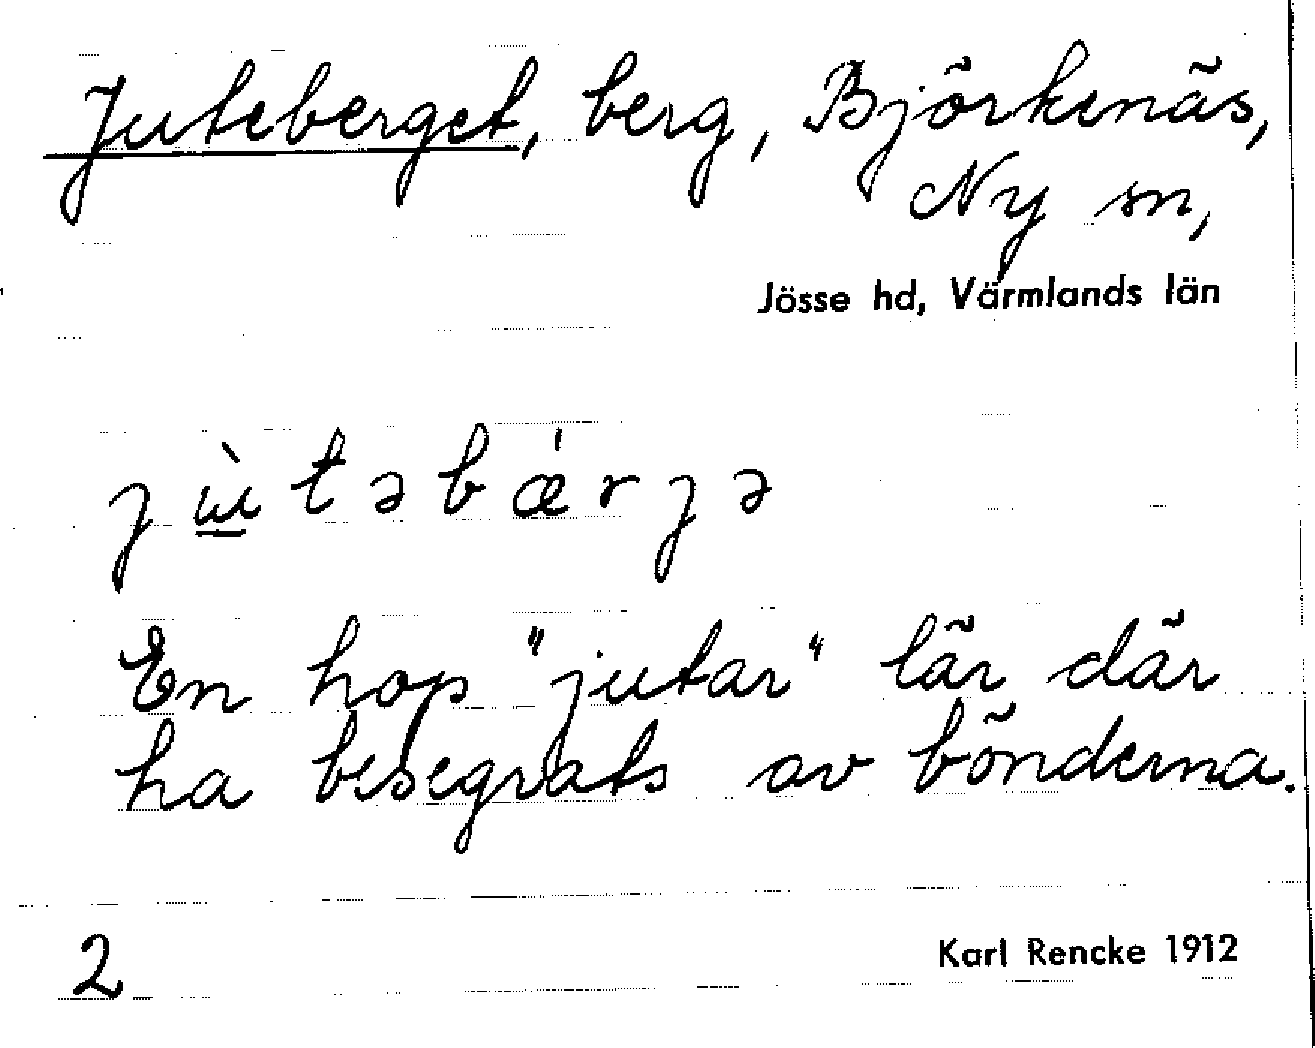 Juteberget, berg, Björkenäs,
Ny sn,
Jösse hd, Värmlands län
jɯ̲̀təbǽrjə
En hop "jutar" lär där
ha besegrats av bönderna.
2
Karl Rencke 1912